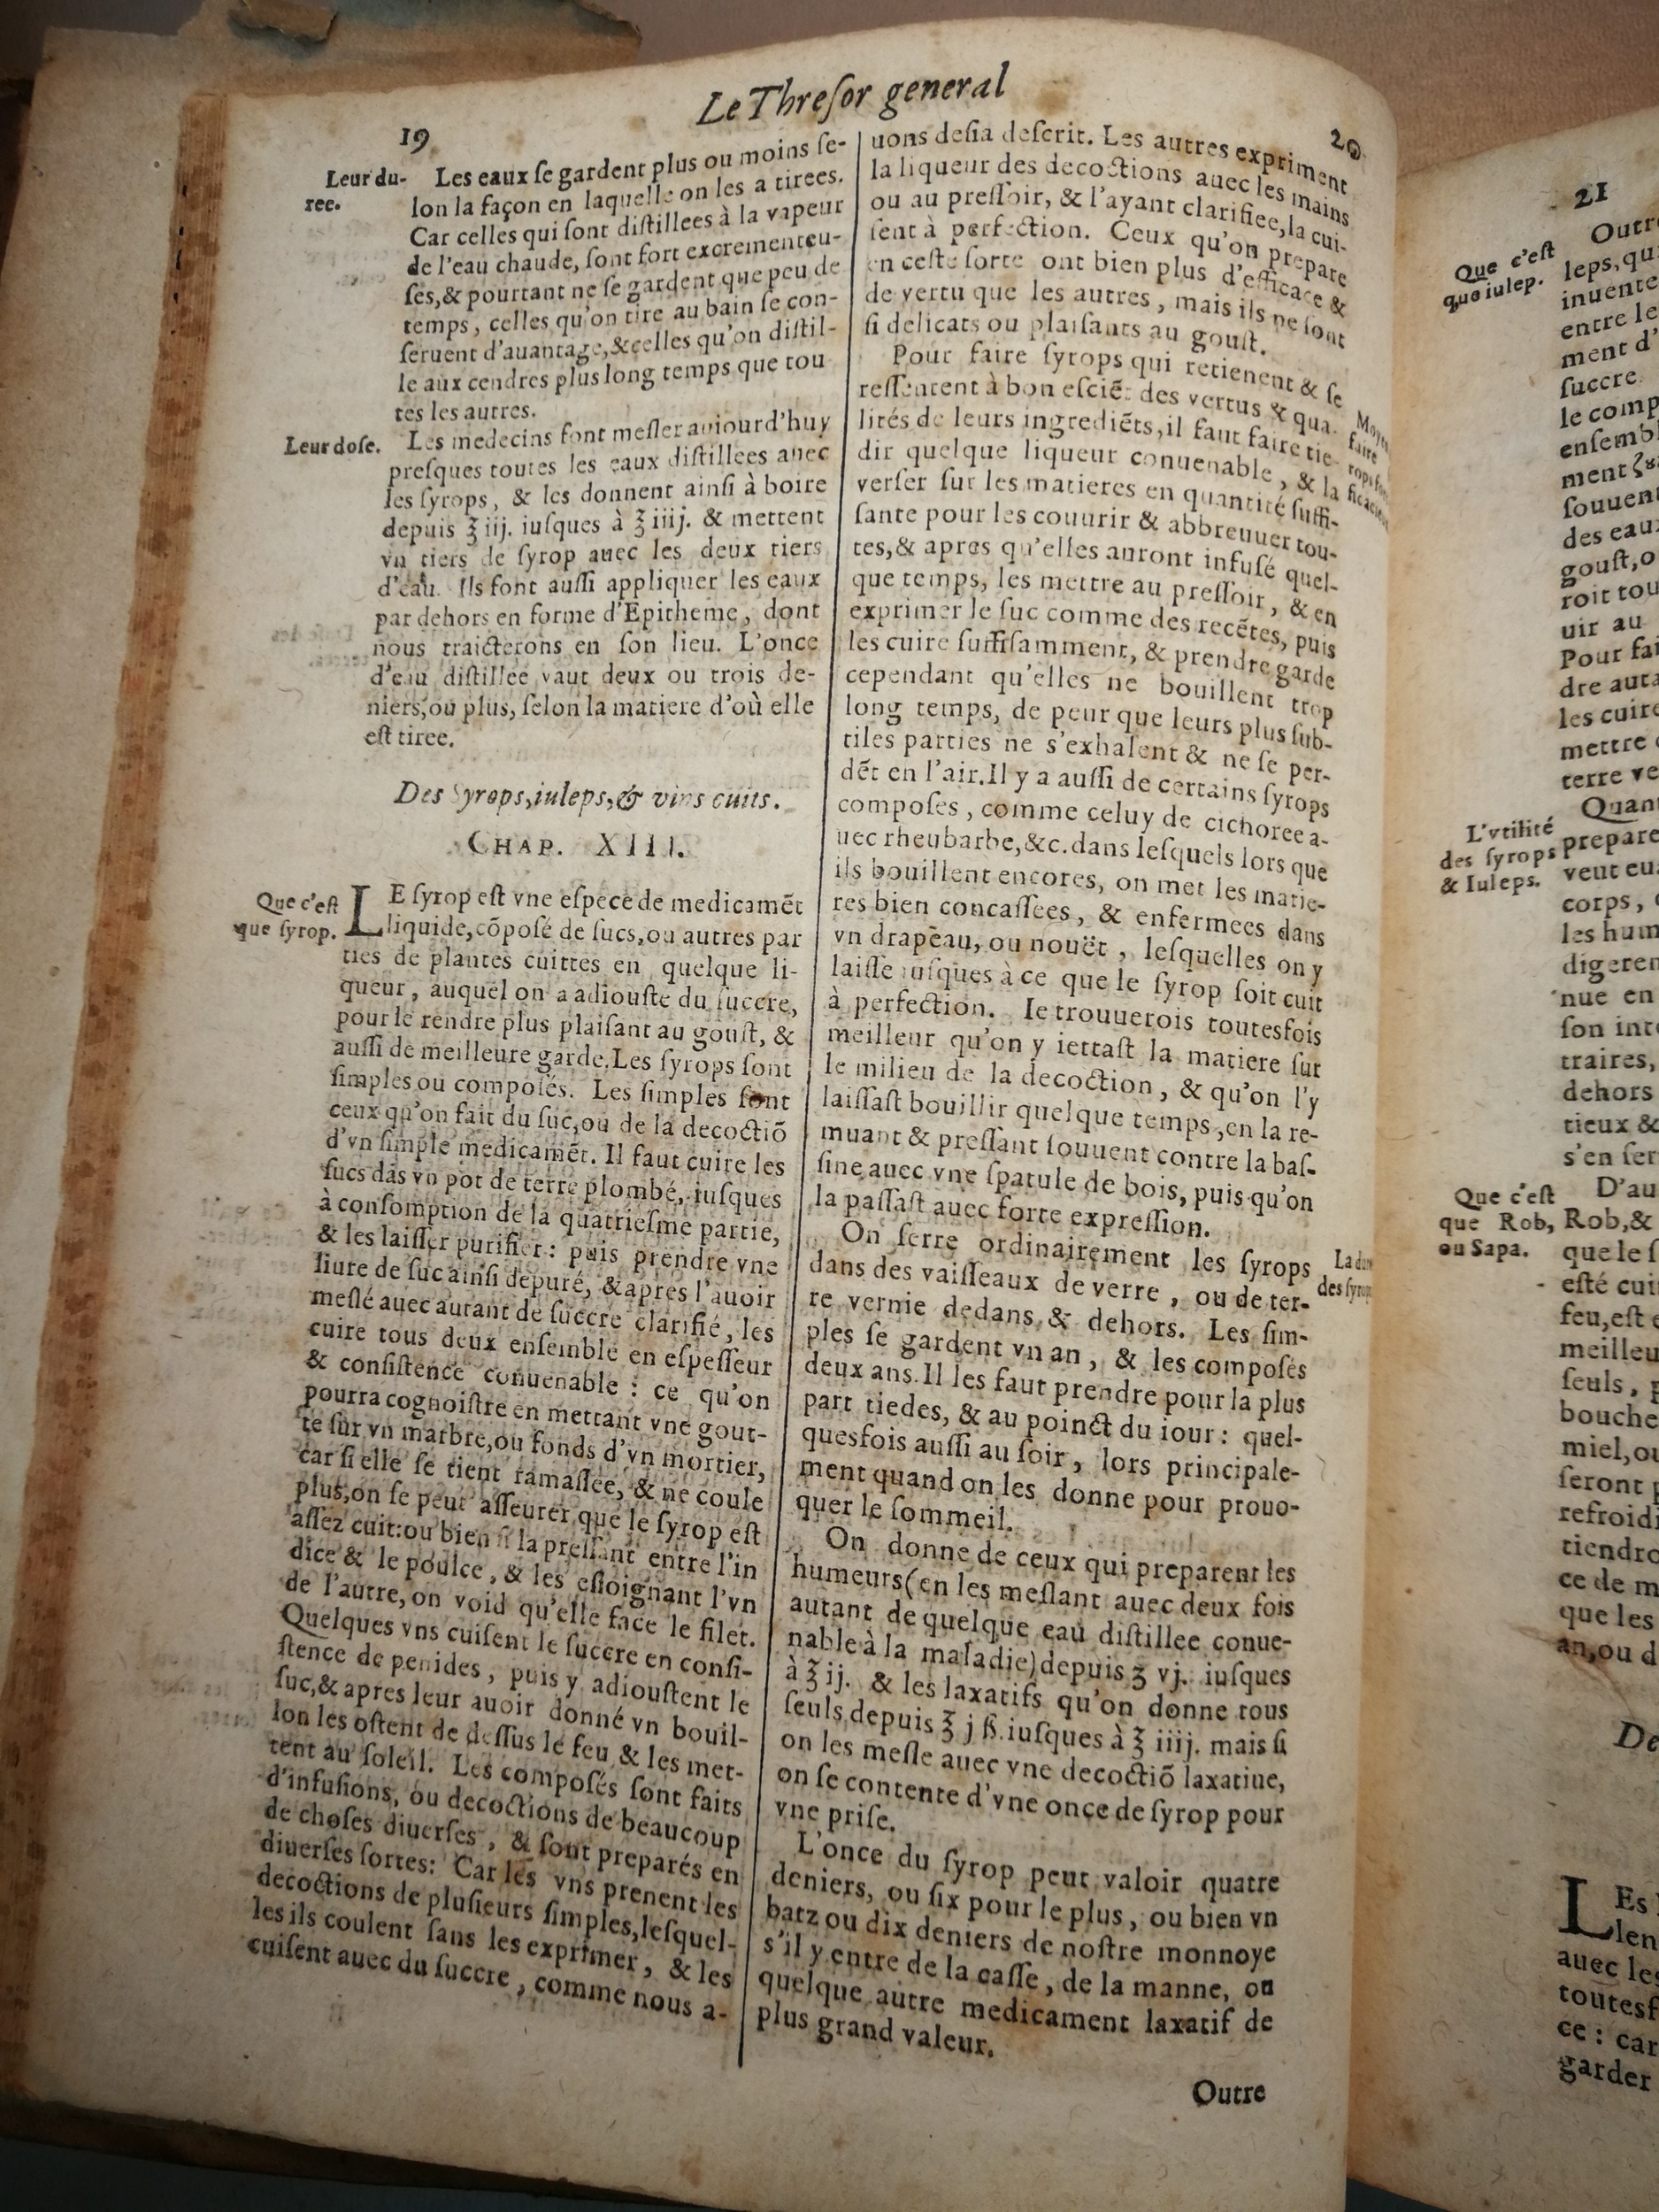 Le Threſor general
19
Leur du-
ree.
Les eaux ſe gardent plus ou moins ſe-
lon la façon en laquelle on les a tirees.
Car celles qui ſont diſtillees à la vapeur
de l'eau chaude, ſont fort excrementeu-
ſes,& pourtant ne ſe gardent que peu de
temps, celles qu'on tire au bain ſe con-
ſeruent d'auantage,&celles qu'on diſtil-
le aux cendres plus long temps que tou
tes les autres.
Leur doſe.
Les medecins font meſler auiourd'huy
preſques toutes les eaux diſtillees auec
les ſyrops, & les donnent ainſi à boire
depuis ℥ iij. iuſques à ℥ iiij. & mettent
vn tiers de ſyrop auec les deux tiers
d'eau. Ils font auſſi appliquer les eaux
par dehors en forme d'Epitheme, dont
nous traicterons en ſon lieu. L'once
d'eau diſtillee vaut deux ou trois de-
niers,ou plus, ſelon la matiere d'où elle
eſt tiree.
Des Syrops,iuleps,& vins cuits.
CHAP. XIII.
Que c'eſt
que ſyrop.
LE ſyrop eſt vne eſpece de medicamēt
liquide,cōpoſé de ſucs,ou autres par
ties de plantes cuittes en quelque li-
queur, auquel on a adiouſte du ſuccre,
pour le rendre plus plaiſant au gouſt, &
auſſi de meilleure garde.Les ſyrops ſont
ſimples ou compoſés. Les ſimples ſont
ceux qu'on fait du ſuc,ou de la decoctiō
d'vn ſimple medicamēt. Il faut cuire les
ſucs dās vn pot de terre plombé, iuſques
à conſomption de la quatrieſme partie,
& les laiſſer purifier : puis prendre vne
liure de ſuc ainſi depuré, &apres l'auoir
meſlé auec autant de ſuccre clarifié, les
cuire tous deux enſemble en eſpeſſeur
& conſiſtence conuenable : ce qu'on
pourra cognoiſtre en mettant vne gout-
te ſur vn marbre,ou fonds d'vn mortier,
car ſi elle ſe tient ramaſſee, & ne coule
plus,on ſe peut aſſeurer que le ſyrop eſt
aſſez cuit:ou bien ſi la preſſant entre l'in
dice & le poulce, & les eſloignant l'vn
de l'autre, on void qu'elle face le filet.
Quelques vns cuiſent le ſuccre en conſi-
ſtence de penides, puis y adiouſtent le
ſuc,& apres leur auoir donné vn bouil-
lon les oſtent de deſſus le feu & les met-
tent au ſoleil. Les compoſés ſont faits
d'infuſions, ou decoctions de beaucoup
de choſes diuerſes, & ſont preparés en
diuerſes ſortes: Car les vns prenent les
decoctions de pluſieurs ſimples,leſquel-
les ils coulent ſans les exprimer, & les
cuiſent auec du ſuccre, comme nous a-
20
uons deſia deſcrit. Les autres expriment
la liqueur des decoctions auec les mains
ou au preſſoir, & l'ayant clarifiee,la cui-
ſent à perfection. Ceux qu'on prepare
en ceſte ſorte ont bien plus d'efficace &
de vertu que les autres, mais ils ne ſont
ſi delicats ou plaiſants au gouſt.
Pour faire ſyrops qui retienent & ſe
reſſentent à bon eſciēt des vertus & qua-
lités de leurs ingrediēts,il faut faire tie-
dir quelque liqueur conuenable, & la
verſer ſur les matieres en quantité ſuffi-
ſante pour les couurir & abbreuuer tou-
tes,& apres qu'elles auront infuſé quel-
que temps, les mettre au preſſoir, & en
exprimer le ſuc comme des recētes, puis
les cuire ſuffiſamment, & prendre garde
cependant qu'elles ne bouillent trop
long temps, de peur que leurs plus ſub-
tiles parties ne s'exhalent & ne ſe per-
dēt en l'air.Il y a auſſi de certains ſyrops
compoſes, comme celuy de cichoree a-
uec rheubarbe,&c.dans leſquels lors que
ils bouillent encores, on met les matie-
res bien concaſſees, & enfermees dans
vn drapeau, ou nouët, leſquelles on y
laiſſe iuſques à ce que le ſyrop ſoit cuit
à perfection. Ie trouuerois toutesfois
meilleur qu'on y iettaſt la matiere ſur
le milieu de la decoction, & qu'on l'y
laiſſaſt bouillir quelque temps,en la re-
muant & preſſant ſouuent contre la baſ-
ſine,auec vne ſpatule de bois, puis qu'on
la paſſaſt auec forte expreſſion.
On ſerre ordinairement les ſyrops
dans des vaiſſeaux de verre, ou de ter-
re vernie dedans & dehors. Les ſim-
ples ſe gardent vn an, & les compoſés
deux ans.Il les faut prendre pour la plus
part tiedes, & au poinct du iour : quel-
quesfois auſſi au ſoir, lors principale-
ment quand on les donne pour prouo-
quer le ſommeil.
On donne de ceux qui preparent les
humeurs(en les meſlant auec deux fois
autant de quelque eau diſtillee conue-
nable à la maladie)depuis ʒ vj. iuſques
à ℥ ij. & les laxatifs qu'on donne tous
ſeuls,depuis ℥ j ß.iuſques à ℥ iiij. mais ſi
on les meſle auec vne decoctiō laxatiue,
on ſe contente d'vne once de ſyrop pour
vne priſe.
L'once du ſyrop peut valoir quatre
deniers, ou ſix pour le plus, ou bien vn
batz ou dix deniers de noſtre monnoye
s'il y entre de la caſſe, de la manne, ou
quelque autre medicament laxatif de
plus grand valeur.
Outre
faire
La
des
21
Que c'eſt
que iulep.
Outre
leps,qui
inuente
entre le
ment d'
ſuccre
le comp
enſembl
ment
ſouuent
des eaux
gouſt,o
roit tou
uir au
Pour fai
dre auta
les cuire
mettre
terre ve
L'vtilité
des ſyrops
& Iuleps.
Quant
prepare
veut eua
corps,
les hum
digeren
nue en
ſon inte
traires,
dehors
tieux &
s'en ſer
Que c'eſt
que Rob,
ou Sapa.
D'au
Rob,&
que le ſ
eſté cuit
feu,eſt
meilleu
ſeuls, p
bouche
miel,ou
ſeront p
refroidi
tiendro
ce de m
que les
an,ou d
De
LEs
len
auec les
toutesf
ce : car
garder